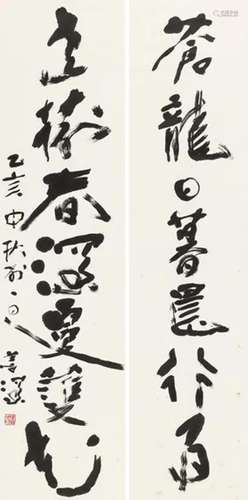 蒼龍日暮還行雨
老樹春深更著花
乙亥中秋前一日
姜澄